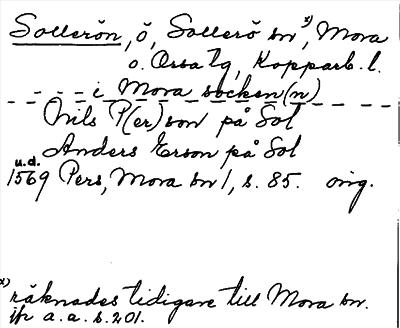 Sollerön, ö, Sollerö sn x), Mora
o. Orsa tg, Kopparb. l.
- - - - i Mora socken(n)
Nils P(er)son på Sol
Anders Erson på Sol
u.d.
1569 Pers, Mora sn 1, s. 85. orig.
x) räknades tidigare till Mora sn.
jfr a.a. s. 201.